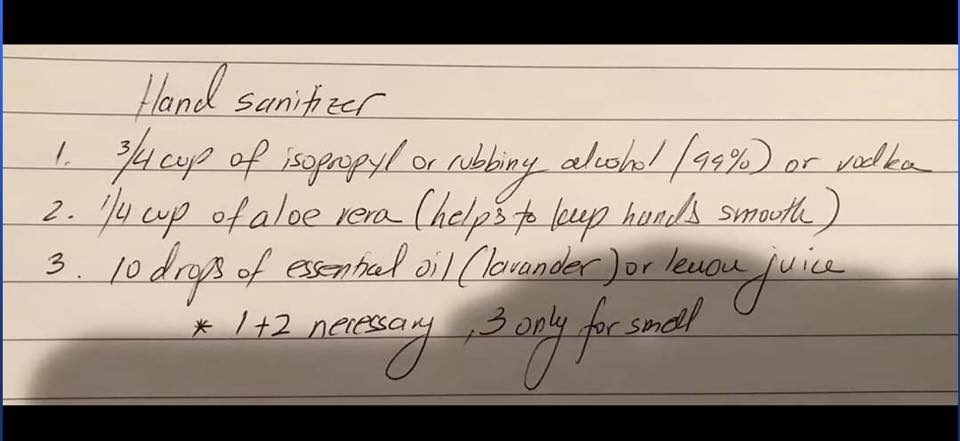 Hand sanitizer
1. 3/4 cup of isopropyl or rubbing alcohol (99%) or vodka
2. 1/4 cup of aloe vera (helps to keep hands smooth)
3. 10 drops of essential oil (lavander) or lemon juice
* 1+2 necessary, 3 only for smell